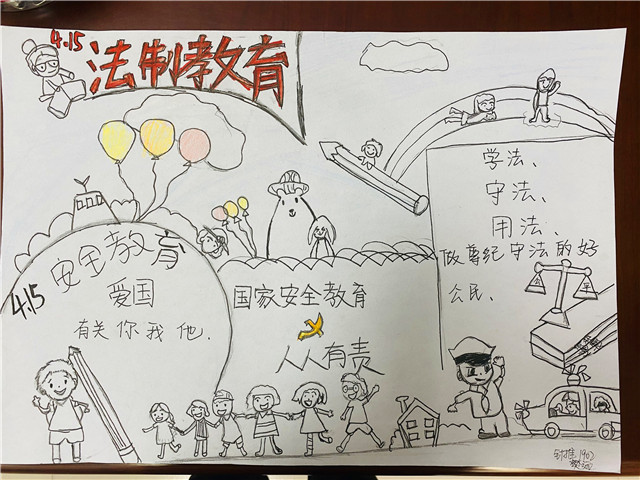 4.15
法制教育
学法、
守法、
用法、
做尊纪守法的好
公民、
安全教育
爱国
有关你我他.
4.15
国家安全教育
人人有责